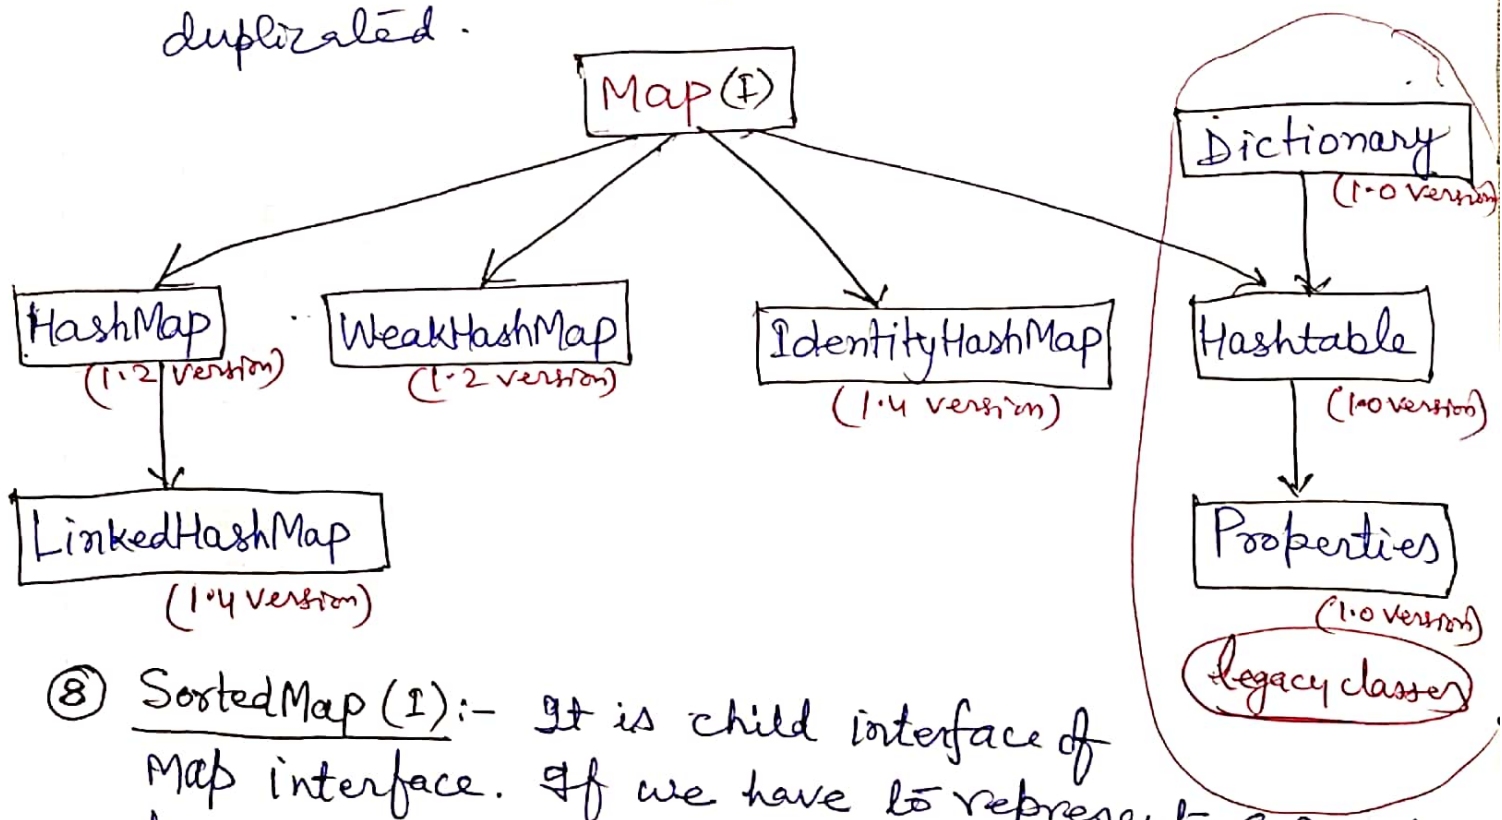 duplicated.
Map (I)
Dictionary
(1.0 version)
HashMap
(1.2 version)
WeakHashMap
(1.2 version)
IdentityHashMap
(1.4 version)
Hashtable
(1.0 version)
LinkedHashMap
(1.4 version)
Properties
(1.0 version)
legacy classes
⑧ SortedMap (I):- It is child interface of
Map interface. If we have to represent